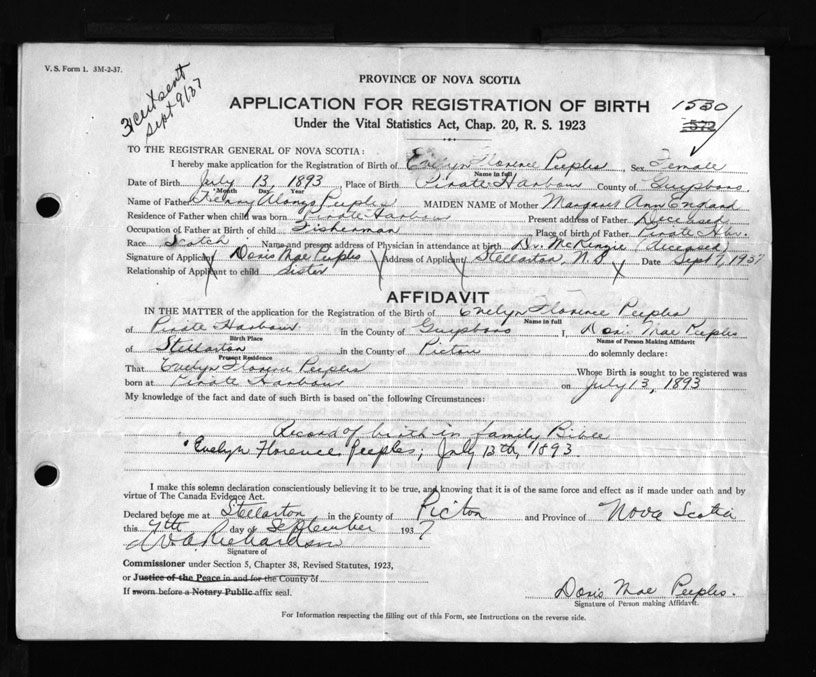 V. S. Form 1. 3M-2-37.
sent
Sept 9/37
PROVINCE OF NOVA SCOTIA
APPLICATION FOR REGISTRATION OF BIRTH 1530
Under the Vital Statistics Act, Chap. 20, R. S. 1923 572
TO THE REGISTRAR GENERAL OF NOVA SCOTIA:
I hereby make application for the Registration of Birth of Evelyn Florence Peeples Sex Female
Name in full
Date of Birth July 13, 1893 Place of Birth Pirate Harbour County of Guysboro
Month Day Year
Name of Father Alonzo Peeples MAIDEN NAME of Mother Margaret Ann England
Residence of Father when child was born Pirate Harbour Present address of Father Deceased
Occupation of Father at Birth of child Fisherman Place of birth of Father Pirate Hbr.
Race Scotch Name and present address of Physician in attendance at birth Dr. McKenzie (deceased)
Signature of Applicant Doris Mae Peeples Address of Applicant Stellarton, N.S Date Sept 7, 1937
Relationship of Applicant to child sister
AFFIDAVIT
IN THE MATTER of the application for the Registration of the Birth of Evelyn Florence Peeples
Name in full
of Pirate Harbour in the County of Guysboro I, Doris Mae Peeples
Birth Place Name of Person Making Affidavit
of Stellarton in the County of Pictou do solemnly declare:
Present Residence
That Evelyn Florence Peeples Whose Birth is sought to be registered was
born at Pirate Harbour on July 13, 1893
My knowledge of the fact and date of such Birth is based on the following Circumstances:
Record of birth in family Bible
"Evelyn Florence Peeples, July 13th, 1893.
I make this solemn declaration conscientiously believing it to be true, and knowing that it is of the same force and effect as if made under oath and by
virtue of The Canada Evidence Act.
Declared before me at Stellarton in the County of Pictou and Province of Nova Scotia
this 7th day of September 1937
W. A. Richardson
Signature of
Commissioner under Section 5, Chapter 38, Revised Statutes, 1923,
or Justice of the Peace in and for the County of
If sworn before a Notary Public affix seal. Doris Mae Peeples.
Signature of Person making Affidavit.
For Information respecting the filling out of this Form, see Instructions on the reverse side.